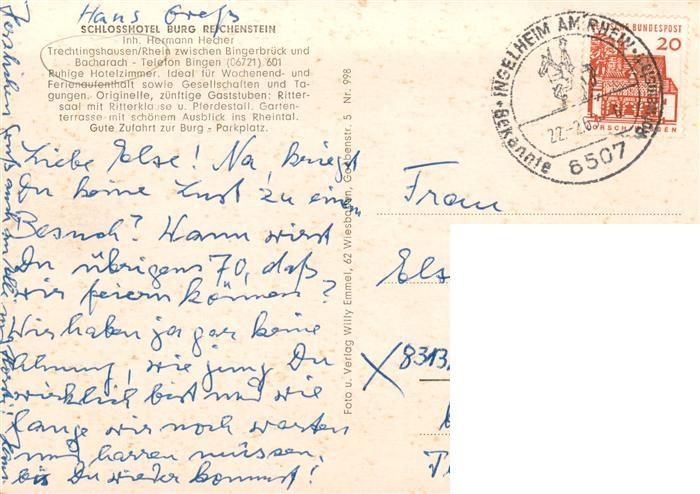 Hans Greß
SCHLOSSHOTEL BURG REICHENSTEIN
Inh. Hermann Hecher
Trechtingshausen/Rhein zwischen Bingerbrück und
Bacharach - Telefon Bingen (06721) 601
Ruhige Hotelzimmer. Ideal für Wochenend- und
Ferienaufenthalt sowie Gesellschaften und Ta-
gungen. Originelle, zünftige Gaststuben: Ritter-
saal mit Ritterklause u. Pferdestall. Garten-
terrasse mit schönem Ausblick ins Rheintal.
Gute Zufahrt zur Burg - Parkplatz.
Liebe Else! Na, kriegst
Du keine Lust zu einem
Besuch? Wann wirst
Du übrigens 70, daß
wir feiern können?
Wir haben ja gar keine
Ahnung, wie jung Du
wirklich bist und wie
lange wir noch warten
und harren müssen,
bis Du wieder kommst!
Herzlichen Gruß auch an alle
Foto u. Verlag Willy Emmel, 62 Wiesbaden, Gabenstr. 5 Nr. 998
INGELHEIM AM RHEIN
Bekannte
22.-2.6
6507
DEUTSCHE BUNDESPOST
20
LORSCH/HESSEN
Frau
Els
8313